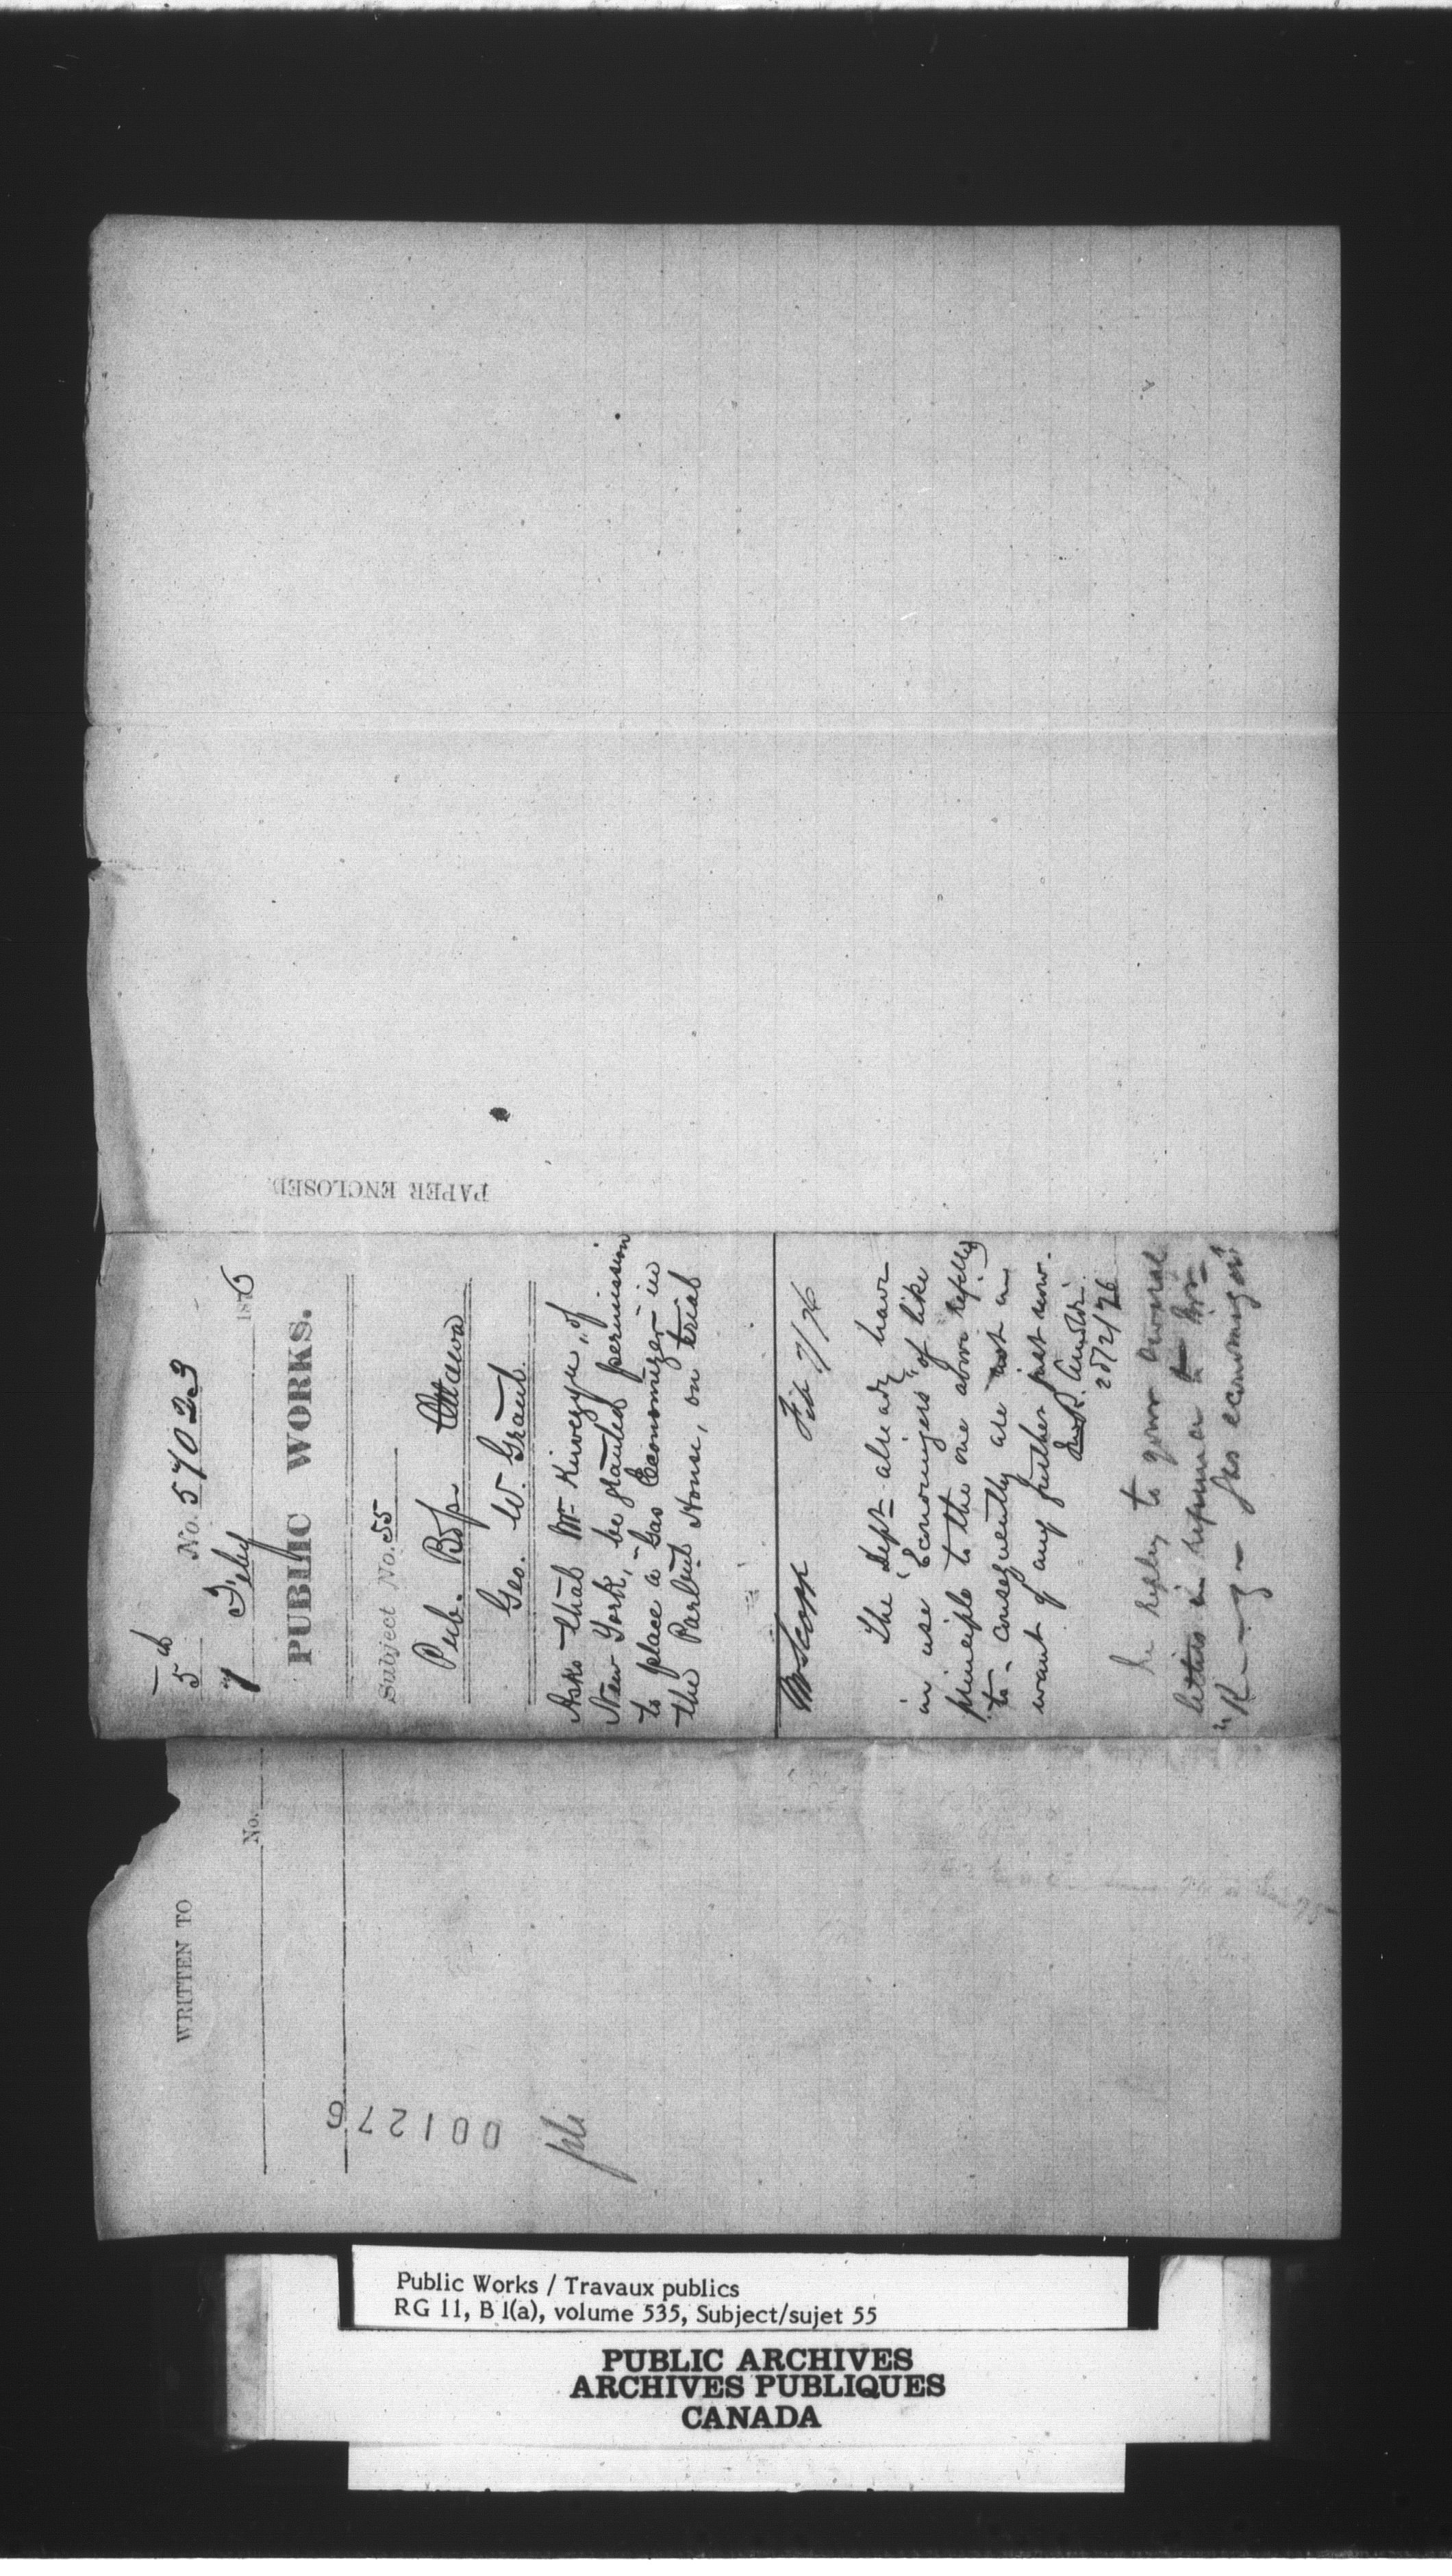 5th
No. 57023
7 Feby 1876
PUBLIC WORKS.
Subject No. 55
Pub. Bgs. Ottawa
Geo. W. Grant.
Asks that Mr. , of
New York, be granted permission
to place a "Gas Economizer" in
the Parlmt. House, on trial
Mr Scott Feb 7/76
The Dept already have
in use "Economizers" of like
principle to the one above referred
to - consequently are not in
want of any further just now.
25/2/76
In reply to your several
letters in reference to
gas economizer
PAPER ENCLOSED.
WRITTEN TO
No.
001276
Public Works / Travaux publics
RG 11, B 1(a), volume 535, Subject/sujet 55
PUBLIC ARCHIVES
ARCHIVES PUBLIQUES
CANADA